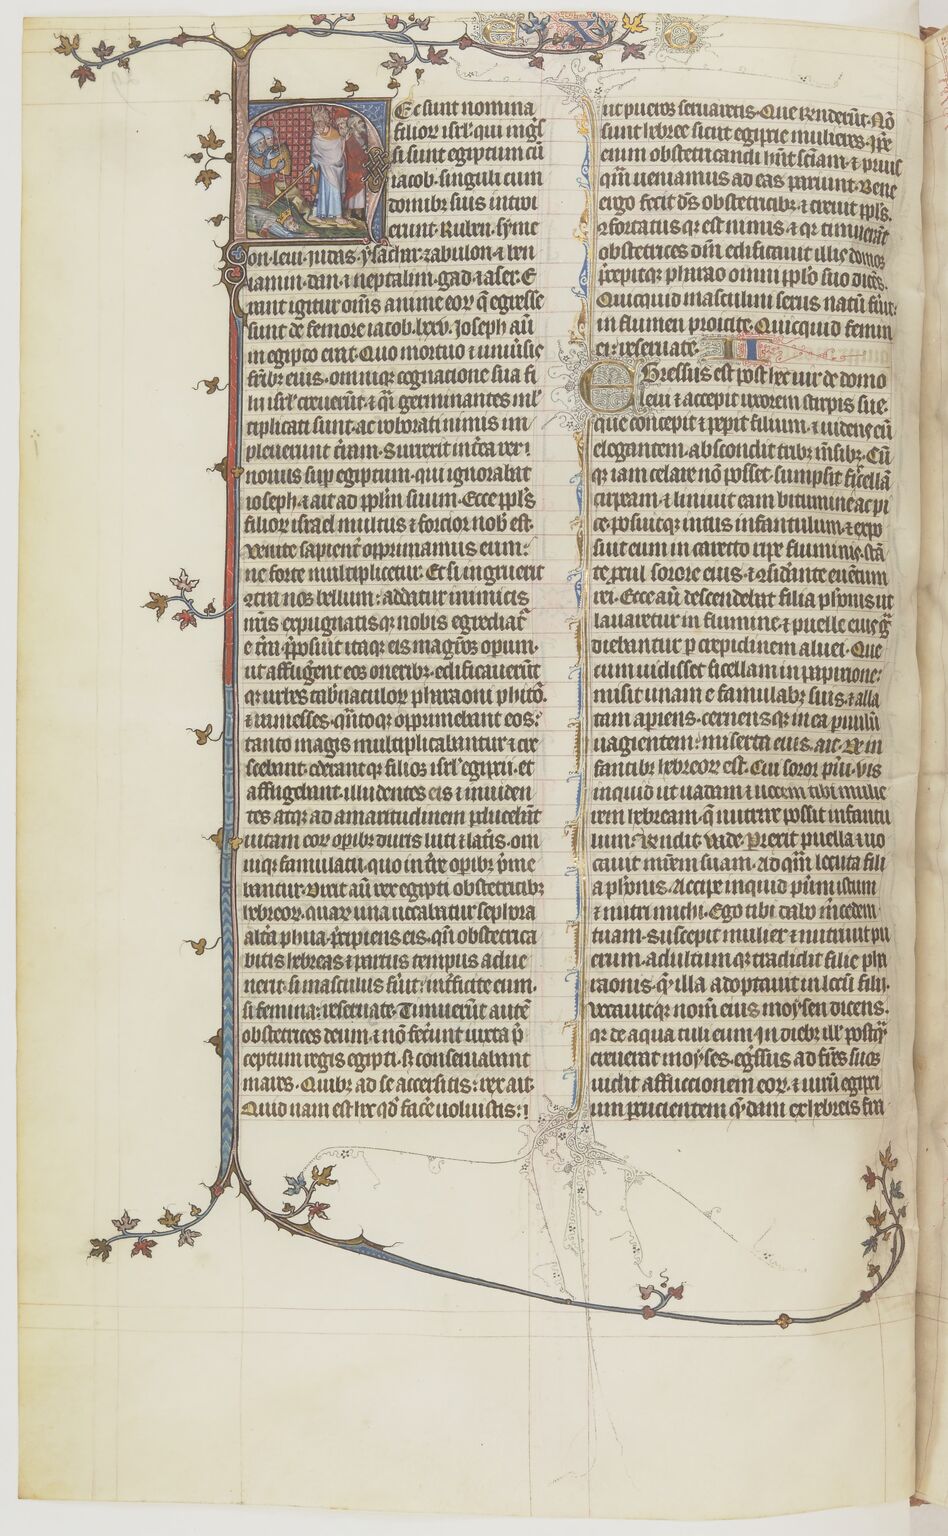 E X O
Ec sunt nomina
filioꝝ isrl̓ qui ingr̃
si sunt egiptum cũ
iacob· singuli cum
domibꝫ suis introi
erunt· Ruben· Sýme
on· leui· iudas· ẏsachar· zabulon· ⁊ ben
iamin· dan· ⁊ neptalim· gad· ⁊ aser· E
rant igitur om̃s anime eoꝝ q̃ egresse
sunt de femore iacob· lxxv· Joseph aũ
in egipto erat· Quo mortuo ⁊ uniũsis
fr̃ibꝫ eius· omniqꝫ cognacione sua fi
lii isrl̓ creuerũt· ⁊ q̃i germinantes ml̓
tiplicati sunt· ac roborati nimis im
pleuerunt t̃ram· Surrexit int̃ea rex
nouus sup̱ egiptum· qui ignorabat
ioseph· ⁊ ait ad ppl̃m suum· Ecce ppl̃s
filioꝝ israel multus ⁊ forcior nob̃ est·
Venite sapient̃ opprimamus eum:
ne forte multiplicetur· Et si ingruerit
ꝯtra nos bellum: addatur inimicis
nr̃is expugnatisqꝫ nobis egrediat̃
e t̃ra· p̃posuit itaqꝫ eis magr̃os opum·
ut affligerent eos oneribꝫ· edificauerũt
qꝫ urbes tab̃naculoꝝ pharaoni phito̅·
⁊ ramesses· qñtoqꝫ opprimebant eos:
tanto magis multiplicabantur ⁊ cre
scebant· oderantqꝫ filios isrl̓ egipcii· et
affligebant· illudentes eis ⁊ inuiden
tes atqꝫ ad amaritudinem ꝑducebãt
uitam eoꝝ opibꝫ duris luti ⁊ lat̃is· om
niqꝫ famulatu· quo in t̃re opibꝫ p̃me
bantur· Dixit aũ rex egipti obstetricibꝫ
hebreoꝝ· quaꝝ una uocabatur sephora
alt̃a phua· p̃cipiens eis· qñ obstetrica
bitis hebreas ⁊ partus tempus adue
nerit· si masculus fũit: int̃ficite eum·
si femina: reseruate· Timuerũt autẽ
obstetrices deum· ⁊ nõ fecerunt iuxta p̃
ceptum regis egipti· s̃ conseruabant
mares· Quibꝫ ad se accersitis: rex ait·
Quid nam est hꝯ qd̃ fac̃e uoluistis:
ut pueros seruaretis· Que rñderũt· Nõ
sunt hebree sicut egiptie mulieres· Ip̃e
enim obstetricandi hñt sc̃iam· ⁊ prius
qm̃ ueniamus ad eas pariunt· Bene
ergo fecit dñs obstetricibꝫ· ⁊ creuit ppl̃s·
ꝯfortatus qꝫ est nimis· ⁊ qꝛ timuerãt
obstetrices dm̃ edificauit illis domos·
p̃cepitqꝫ pharao omni ppl̃o suo dicẽs·
Quicquid masculini sexus natũ fũit:
in flumen proicite· Quicquid femin
ei: reseruate· II
EGressus est post hec uir de domo
leui ⁊ accepit uxorem stirpis sue·
que concepit ⁊ pepit filium· ⁊ uidens eũ
elegantem· abscondit tribꝫ m̃sibꝫ· Cũ
qꝫ iam celare nõ posset· sumpsit fiscellã
cirpeam· ⁊ liniuit eam bitumine ac pi
ce· posuitqꝫ intus infantulum· ⁊ expo
suit eum in carecto ripe fluminis· stã
te ꝓcul sorore eius· ⁊ ꝯsid̃ante euẽtum
rei· Ecce aũ descendebat filia ph̃onis ut
lauaretur in flumine· ⁊ puelle eius gͣ
diebantur ꝑ crepidinem aluei· Que
cum uidisset ficellam in papirione:
misit unam e famulabꝫ suis· ⁊ alla
tam apiens· cernensqꝫ in ea puulũ
uagientem: miserta eius· ait· De in
fantibꝫ hebreoꝝ est· Cui soror pũi· vis
inquid ut uadam ⁊ uocem tibi mulie
rem hebream· q̃ nutrire possit infantu
lum: Rendit· vade· Prexit puella ⁊ uo
cauit mr̃em suam· Ad qm̃ locuta fili
a ph̃onis· Accipe inquid pũm istum
⁊ nutri michi· Ego tibi dabo m̃cedem
tuam· Suscepit mulier ⁊ nutriuit pu
erum· adultum qꝫ tradidit filie pha
raonis· q̃ illa adoptauit in locũ filii·
vocauitqꝫ nom̃ eius moẏsen dicens·
qꝛ de aqua tuli eum· In diebꝫ ill̓ postq̃
creuerat moẏses· eg̃ssus ad fr̃es suos
uidit affliccionem eoꝝ· ⁊ uirũ egipti
um ꝑcucientem q̃dam ex hebreis fra